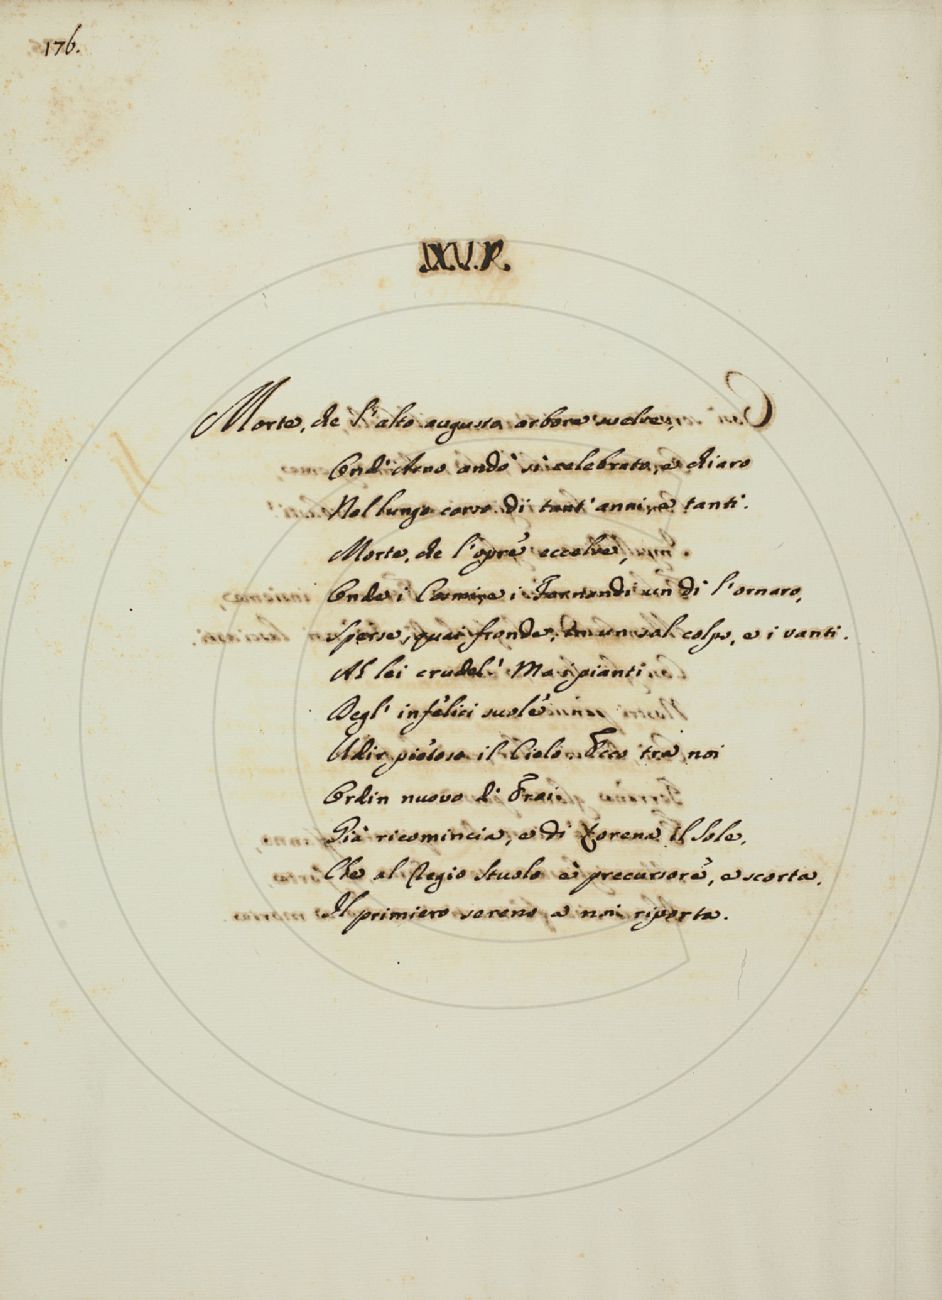 176.
IXV.R.
Morte, che l'alto augusto arbore svelve,
Ond' Arno andò sì celebrato, e chiaro
Nel lungo corso di tant' anni, e tanti.
Morte, che l'opre eccelse,
Onde i Cosmi, e i Fernandi un dì l'ornaro,
Sperse, quai fronde, in un sol colpo, e i vanti.
Ah lei crudel! Ma i pianti
Degl' infelici suole
Udir pietoso il Cielo. Ecco tra noi
Ordin nuovo d' Eroi
Già ricomincia, e di Lorena il Sole,
Che al Regio stuolo è precursore, e scorta,
Il primiero sereno a noi riporta.